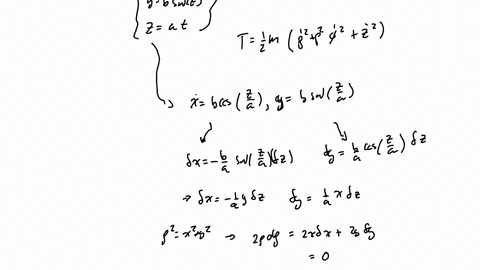 y = b sin(t)
z = a t
T = 1/2 m (ρ̇² + ρ² φ̇² + ż²)
ẋ = b cos(z/a), y = b sin(z/a)
δx = -b/a sin(z/a)(δz)
δy = b/a cos(z/a) δz
→ δx = -1/a y δz
δy = 1/a x δz
ρ² = x² + y² → 2ρ δρ = 2x δx + 2y δy
= 0